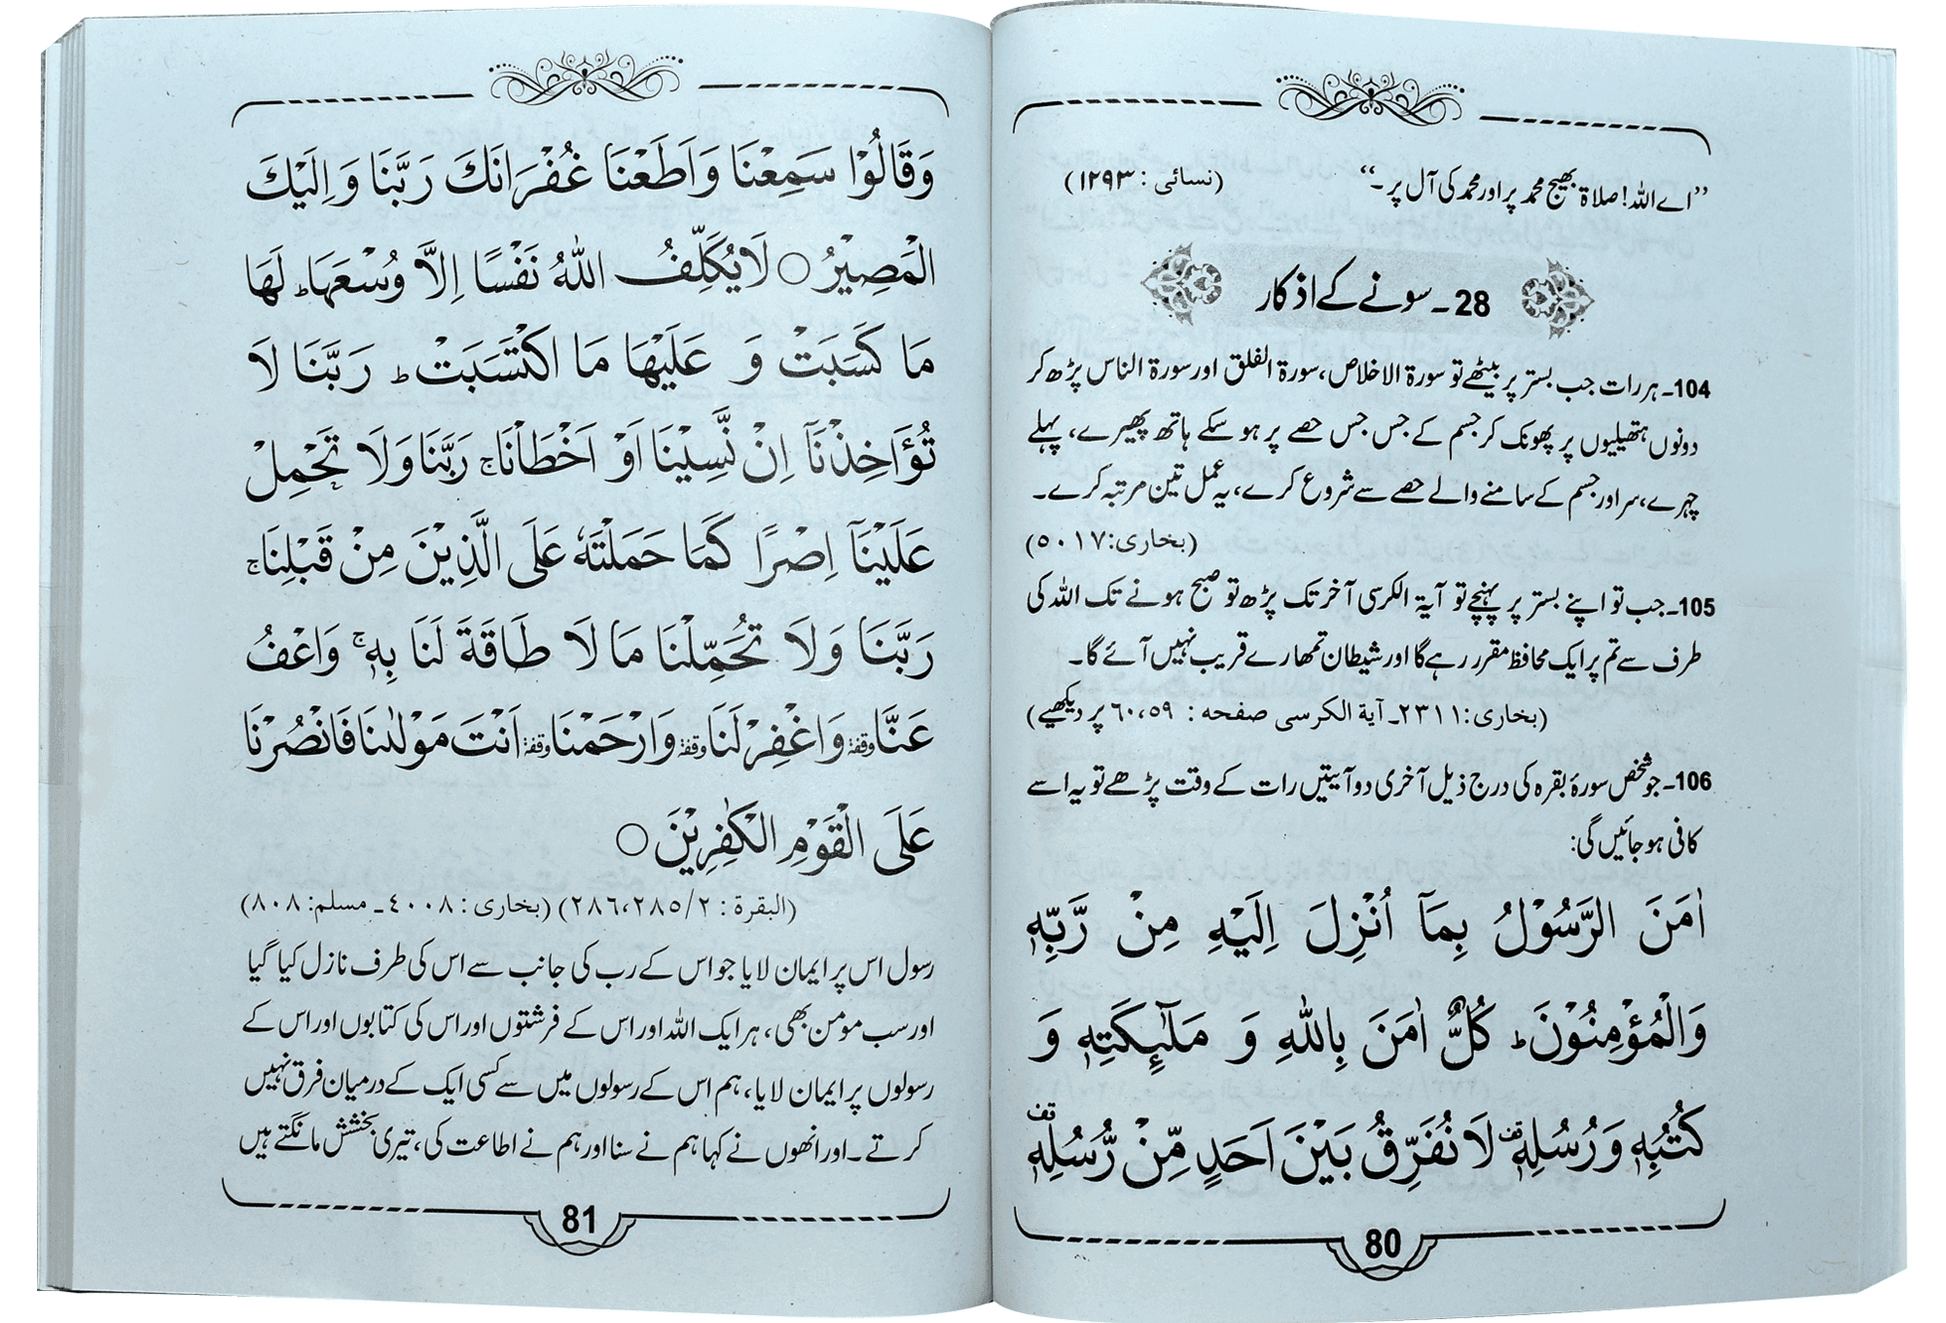 ”اے اللہ! صلاۃ بھیج محمد پر اور محمد کی آل پر۔“ (نسائی : ۱۲۹۳)
28۔ سونے کے اذکار
104۔ ہر رات جب بستر پر بیٹھے تو سورۃ الاخلاص، سورۃ الفلق اور سورۃ الناس پڑھ کر
دونوں ہتھیلیوں پر پھونک کر جسم کے جس جس حصے پر ہو سکے ہاتھ پھیرے، پہلے
چہرے، سر اور جسم کے سامنے والے حصے سے شروع کرے، یہ عمل تین مرتبہ کرے۔
(بخاری: ۵۰۱۷)
105۔ جب تو اپنے بستر پر پہنچے تو آیۃ الکرسی آخر تک پڑھ تو صبح ہونے تک اللہ کی
طرف سے تم پر ایک محافظ مقرر رہے گا اور شیطان تمھارے قریب نہیں آئے گا۔
(بخاری: ۲۳۱۱۔ آیة الکرسی صفحه : ۶۰،۵۹ پر دیکھیے)
106۔ جو شخص سورۂ بقرہ کی درج ذیل آخری دو آیتیں رات کے وقت پڑھے تو یہ اسے
کافی ہو جائیں گی:
اٰمَنَ الرَّسُوْلُ بِمَآ اُنْزِلَ اِلَيْهِ مِنْ رَّبِّهٖ
وَالْمُؤْمِنُوْنَ ؕ كُلٌّ اٰمَنَ بِاللّٰهِ وَ مَلٰٓئِكَتِهٖ وَ
كُتُبِهٖ وَرُسُلِهٖ قف لَا نُفَرِّقُ بَيْنَ اَحَدٍ مِّنْ رُّسُلِهٖ قف
80
وَقَالُوْا سَمِعْنَا وَاَطَعْنَا غُفْرَانَكَ رَبَّنَا وَاِلَيْكَ
الْمَصِيْرُ ○ لَا يُكَلِّفُ اللّٰهُ نَفْسًا اِلَّا وُسْعَهَا ؕ لَهَا
مَا كَسَبَتْ وَ عَلَيْهَا مَا اكْتَسَبَتْ ؕ رَبَّنَا لَا
تُؤَاخِذْنَآ اِنْ نَّسِيْنَا اَوْ اَخْطَاْنَا ۚ رَبَّنَا وَلَا تَحْمِلْ
عَلَيْنَآ اِصْرًا كَمَا حَمَلْتَهٗ عَلَى الَّذِيْنَ مِنْ قَبْلِنَا ۚ
رَبَّنَا وَلَا تُحَمِّلْنَا مَا لَا طَاقَةَ لَنَا بِهٖ ۚ وَاعْفُ
عَنَّا وقفة وَاغْفِرْ لَنَا وقفة وَارْحَمْنَا وقفة اَنْتَ مَوْلٰىنَا فَانْصُرْنَا
عَلَى الْقَوْمِ الْكٰفِرِيْنَ ○
(البقرة : ۲/۲۸۵،۲۸۶) (بخاری : ۴۰۰۸ ۔ مسلم: ۸۰۸)
رسول اس پر ایمان لایا جو اس کے رب کی جانب سے اس کی طرف نازل کیا گیا
اور سب مومن بھی، ہر ایک اللہ اور اس کے فرشتوں اور اس کی کتابوں اور اس کے
رسولوں پر ایمان لایا، ہم اس کے رسولوں میں سے کسی ایک کے درمیان فرق نہیں
کرتے۔ اور انھوں نے کہا ہم نے سنا اور ہم نے اطاعت کی، تیری بخشش مانگتے ہیں
81